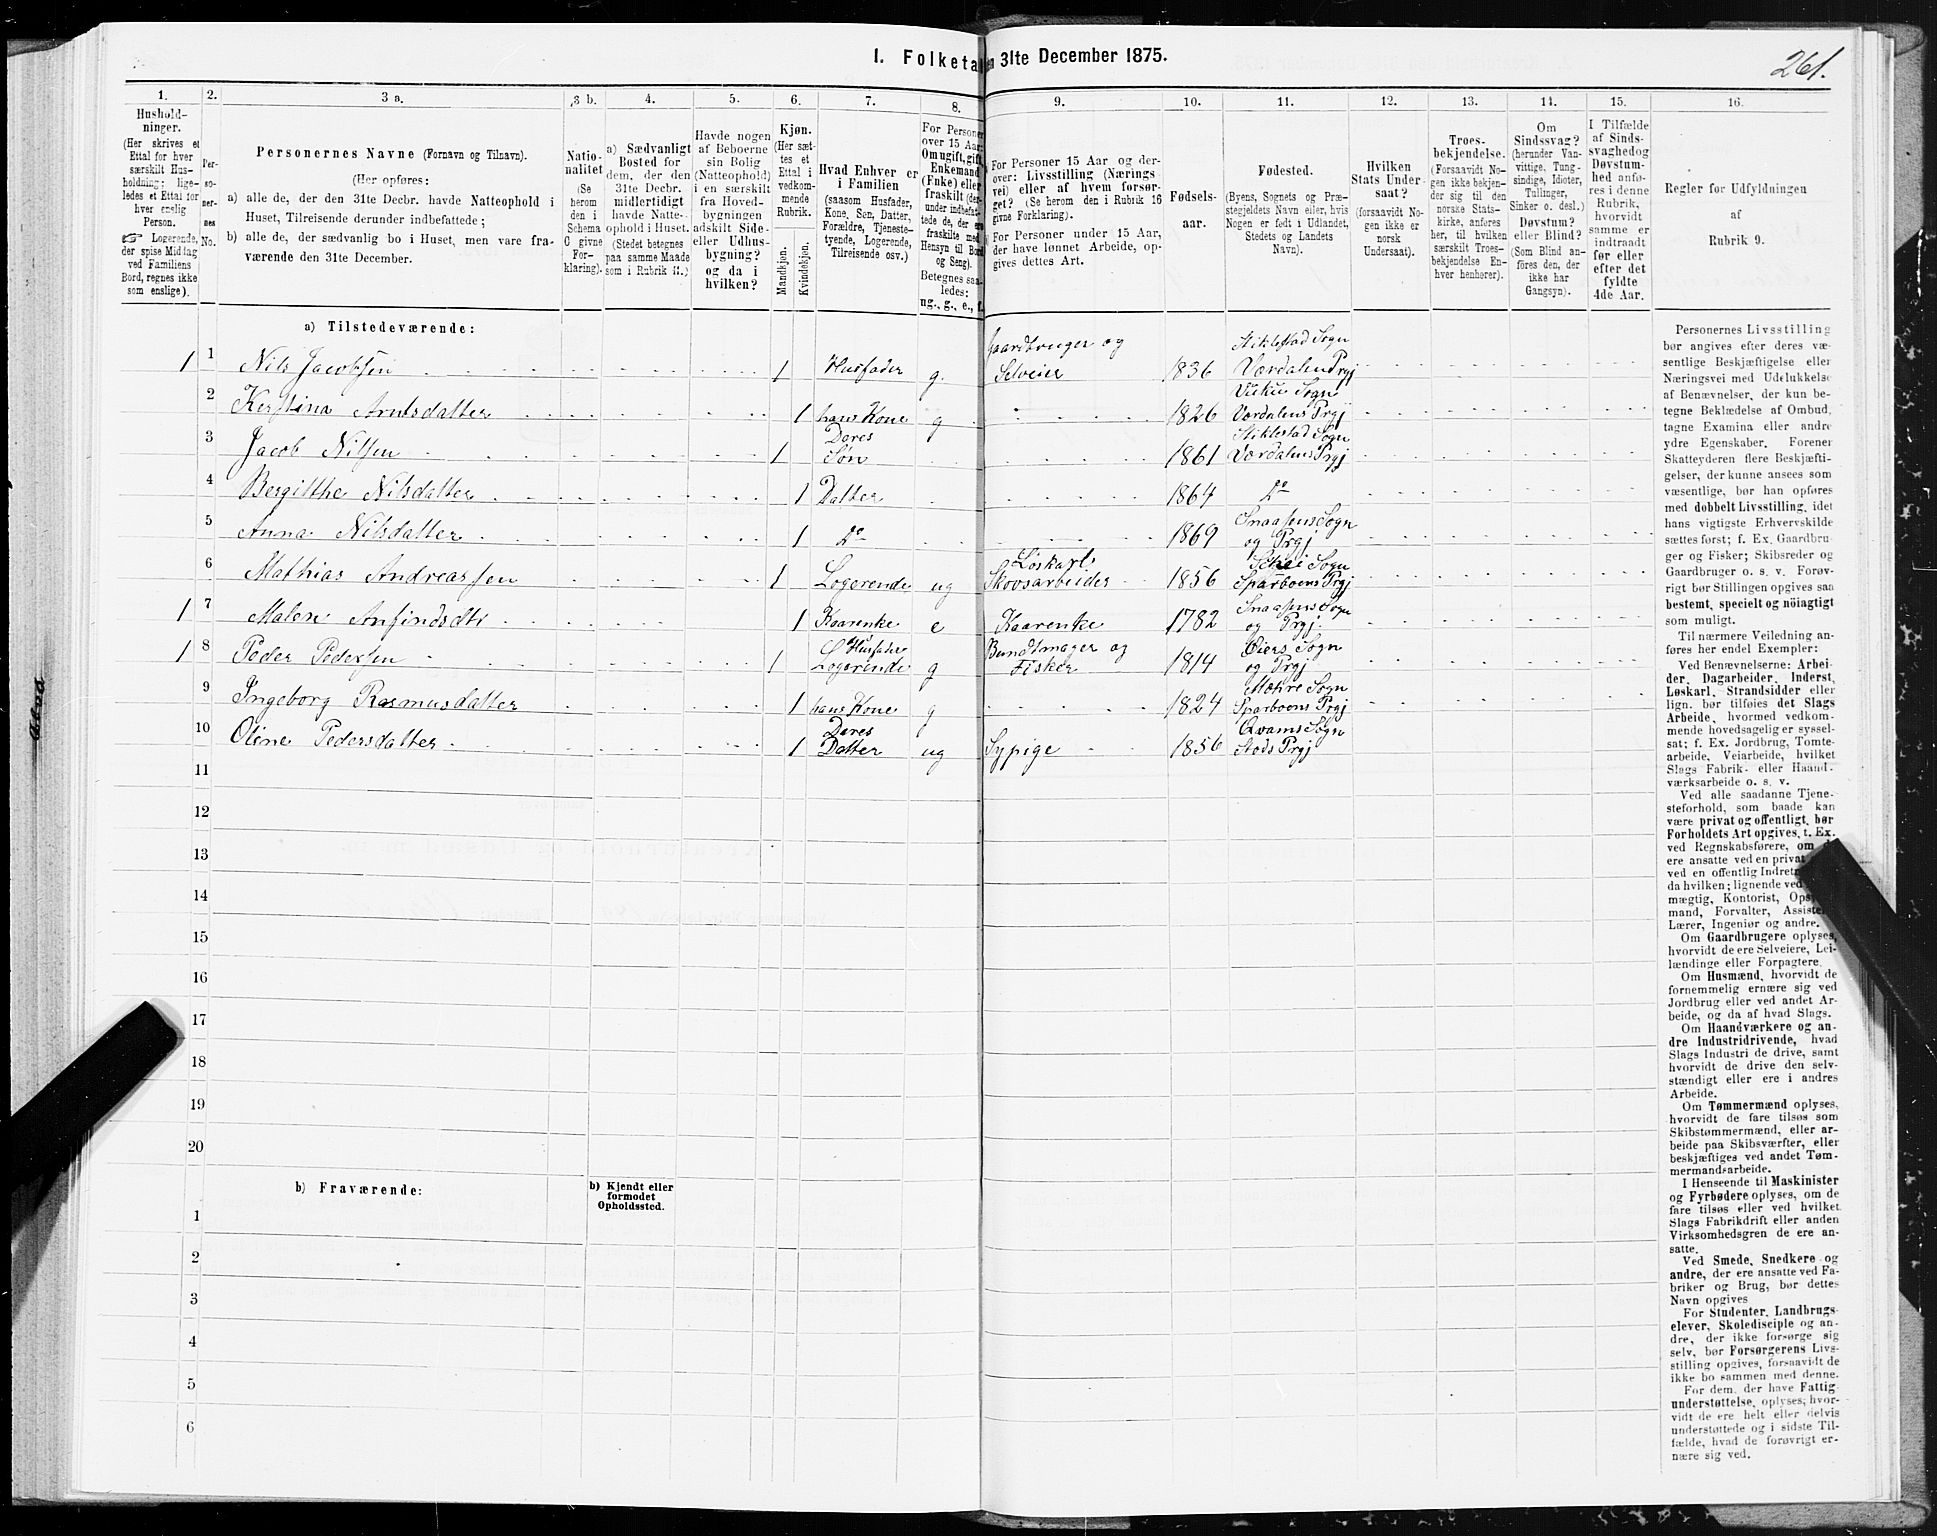 I. Folketa en 31te December 1875.
261.
1.
Hushold-
ninger.
(Her skrives et
Ettal for hver
særskilt Hus-
holdning; lige-
ledes et Ettal for
hver enslig
Person.
☞ Logerende,
der spise Middag
ved Familiens
Bord, regnes ikke
som enslige).
2.
Per-
so-
ner-
nes
No.
3 a.
Personernes Navne (Fornavn og Tilnavn).
(Her opføres:
a) alle de, der den 31te Decbr. havde Natteophold i
Huset, Tilreisende derunder indbefattede;
b) alle de, der sædvanlig bo i Huset, men vare fra-
værende den 31te December.
3 b.
Natio-
nalitet
(Se
herom
den i
Schema
C givne
For-
klaring).
4.
a) Sædvanligt
Bosted for
dem, der den
31te Decbr.
midlertidigt
havde Natte-
ophold i Huset.
(Stedet betegnes
paa samme Maade
som i Rubrik 11.)
5.
Havde nogen
af Beboerne
sin Bolig
(Natteophold)
i en særskilt
fra Hoved-
bygningen
adskilt Side-
eller Udhus-
bygning?
og da i
hvilken?
6.
Kjøn.
(Her sæt-
tes et
Ettal i
vedkom-
mende
Rubrik.
Mandkjøn.
Kvindekjøn.
7.
Hvad Enhver er
i Familien
(saasom Husfader,
Kone, Søn, Datter,
Forældre, Tjeneste-
tyende, Logerende,
Tilreisende osv.)
8.
For Personer
over 15 Aar:
Om ugift, gift,
Enkemand
(Enke) eller
fraskilt (der-
under indbefat-
tede de, der ere
fraskilte med
Hensyn til Bord
og Seng).
Betegnes saa-
ledes:
ug., g., e., f.
9.
For Personer 15 Aar og der-
over: Livsstilling (Nærings-
vei) eller af hvem forsør-
get? (Se herom den i Rubrik 16
givne Forklaring).
For Personer under 15 Aar,
der have lønnet Arbeide, op-
gives dettes Art.
10.
Fødsels-
aar.
11.
Fødested.
(Byens, Sognets og Præ-
stegjeldets Navn eller, hvis
Nogen er født i Udlandet,
Stedets og Landets
Navn).
12.
Hvilken
Stats Under-
saat?
(forsaavidt No-
gen ikke er
norsk
Undersaat).
13.
Troes-
bekjendelse.
(Forsaavidt No-
gen ikke bekjen-
der sig til den
norske Stats-
kirke, anføres
her, til hvilken
særskilt Troes-
bekjendelse En-
hver henhører).
14.
Om
Sindssvag?
(herunder Van-
vittige, Tung-
sindige, Idioter,
Tullinger,
Sinker o. desl.)
Døvstum?
eller Blind?
(Som Blind an-
føres den, der
ikke har
Gangsyn).
15.
I Tilfælde
af Sinds-
svaghed og
Døvstum-
hed anfø-
res i denne
Rubrik,
hvorvidt
samme er
indtraadt
før eller
efter det
fyldte
4de Aar.
16.
Regler for Udfyldningen
af
Rubrik 9.
a) Tilstedeværende:
1 1 Nils Jacobsen 1 Husfader g. Gaardbruger og Selveier 1836 Stiklestad Sogn Værdalens Prgj
2 Kerstina Arntsdatter 1 hans Kone g 1826 Vukku Sogn Værdalens Prgj
3 Jacob Nilsen 1 Deres Søn 1861 Stiklestad Sogn Værdalens Prgj
4 Bergitthe Nilsdatter 1 Datter 1864 Do
5 Anna Nilsdatter 1 Do 1869 Snaasens Sogn og Prgj
6 Mathias Andreassen 1 Logerende ug Løskarl, Skovsarbeider 1856 Sogn Sparboens Prgj
1 7 Malen Anfindsdtr 1 Kaarenke e Kaarenke 1782 Snaasens Sogn og Prgj.
1 8 Peder Pedersen 1 Husfader Logerende g Bundtmager og Fisker 1814 Øiers Sogn og Prgj
9 Ingeborg Rasmusdatter 1 hans Kone g 1824 Mæhre Sogn Sparboens Prgj
10 Oline Pedersdatter 1 Deres Datter ug Sypige 1856 Qvams Sogn Stods Prgj
11
12
13
14
15
16
17
18
19
20
b) Fraværende:
b) Kjendt eller
formodet
Opholdssted.
1
2
3
4
5
6
Personernes Livsstilling
bør angives efter deres væ-
sentlige Beskjæftigelse eller
Næringsvei med Udelukkelse
af Benævnelser, der kun be-
tegne Beklædelse af Ombud,
tagne Examina eller andre
ydre Egenskaber. Forener
Skatteyderen flere Beskjæfti-
gelser, der kunne ansees som
væsentlige, bør han opføres
med dobbelt Livsstilling, idet
hans vigtigste Erhvervskilde
sættes først; f. Ex. Gaardbru-
ger og Fisker; Skibsreder og
Gaardbruger o. s. v. Forøv-
rigt bør Stillingen opgives saa
bestemt, specielt og nöiagtigt
som muligt.
Til nærmere Veiledning an-
føres her endel Exempler:
Ved Benævnelserne: Arbei-
der, Dagarbeider, Inderst,
Løskarl, Strandsidder eller
lign. bør tilføies det Slags
Arbeide, hvormed vedkom-
mende hovedsagelig er syssel-
sat; f. Ex. Jordbrug, Tomte-
arbeide, Veiarbeide, hvilket
Slags Fabrik- eller Haand-
værksarbeide o. s. v.
Ved alle saadanne Tjene-
steforhold, som baade kan
være privat og offentligt, bør
Forholdets Art opgives, t. Ex.
ved Regnskabsførere, om d
ere ansatte ved en privat
ved en offentlig Indretn
da hvilken; lignende ved
mægtig, Kontorist, Ops
mand, Forvalter, Assiste
Lærer, Ingeniør og andre.
Om Gaardbrugere oplyses,
hvorvidt de ere Selveiere, Lei-
lændinge eller Forpagtere.
Om Husmænd, hvorvidt de
fornemmelig ernære sig ved
Jordbrug eller ved andet Ar-
beide, og da af hvad Slags.
Om Haandværkere og an-
dre Industridrivende, hvad
Slags Industri de drive, samt
hvorvidt de drive den selv-
stændigt eller ere i andres
Arbeide.
Om Tømmermænd oplyses,
hvorvidt de fare tilsøs som
Skibstømmermænd, eller ar-
beide paa Skibsværfter, eller
beskjæftiges ved andet Tøm-
mermandsarbeide.
I Henseende til Maskinister
og Fyrbødere oplyses, om de
fare tilsøs eller ved hvilket
Slags Fabrikdrift eller anden
Virksomhedsgren de ere an-
satte.
Ved Smede, Snedkere og
andre, der ere ansatte ved Fa-
briker og Brug, bør dettes
Navn opgives
For Studenter, Landbrugs-
elever, Skoledisciple og an-
dre, der ikke forsørge sig
selv, bør Forsørgerens Livs-
stilling opgives, forsaavidt de
ikke bo sammen med denne.
For dem, der have Fattig-
understøttelse, oplyses, hvor-
vidt de ere helt eller delvis
understøttede og i sidste Til-
fælde, hvad de forøvrigt er-
nære sig ved.